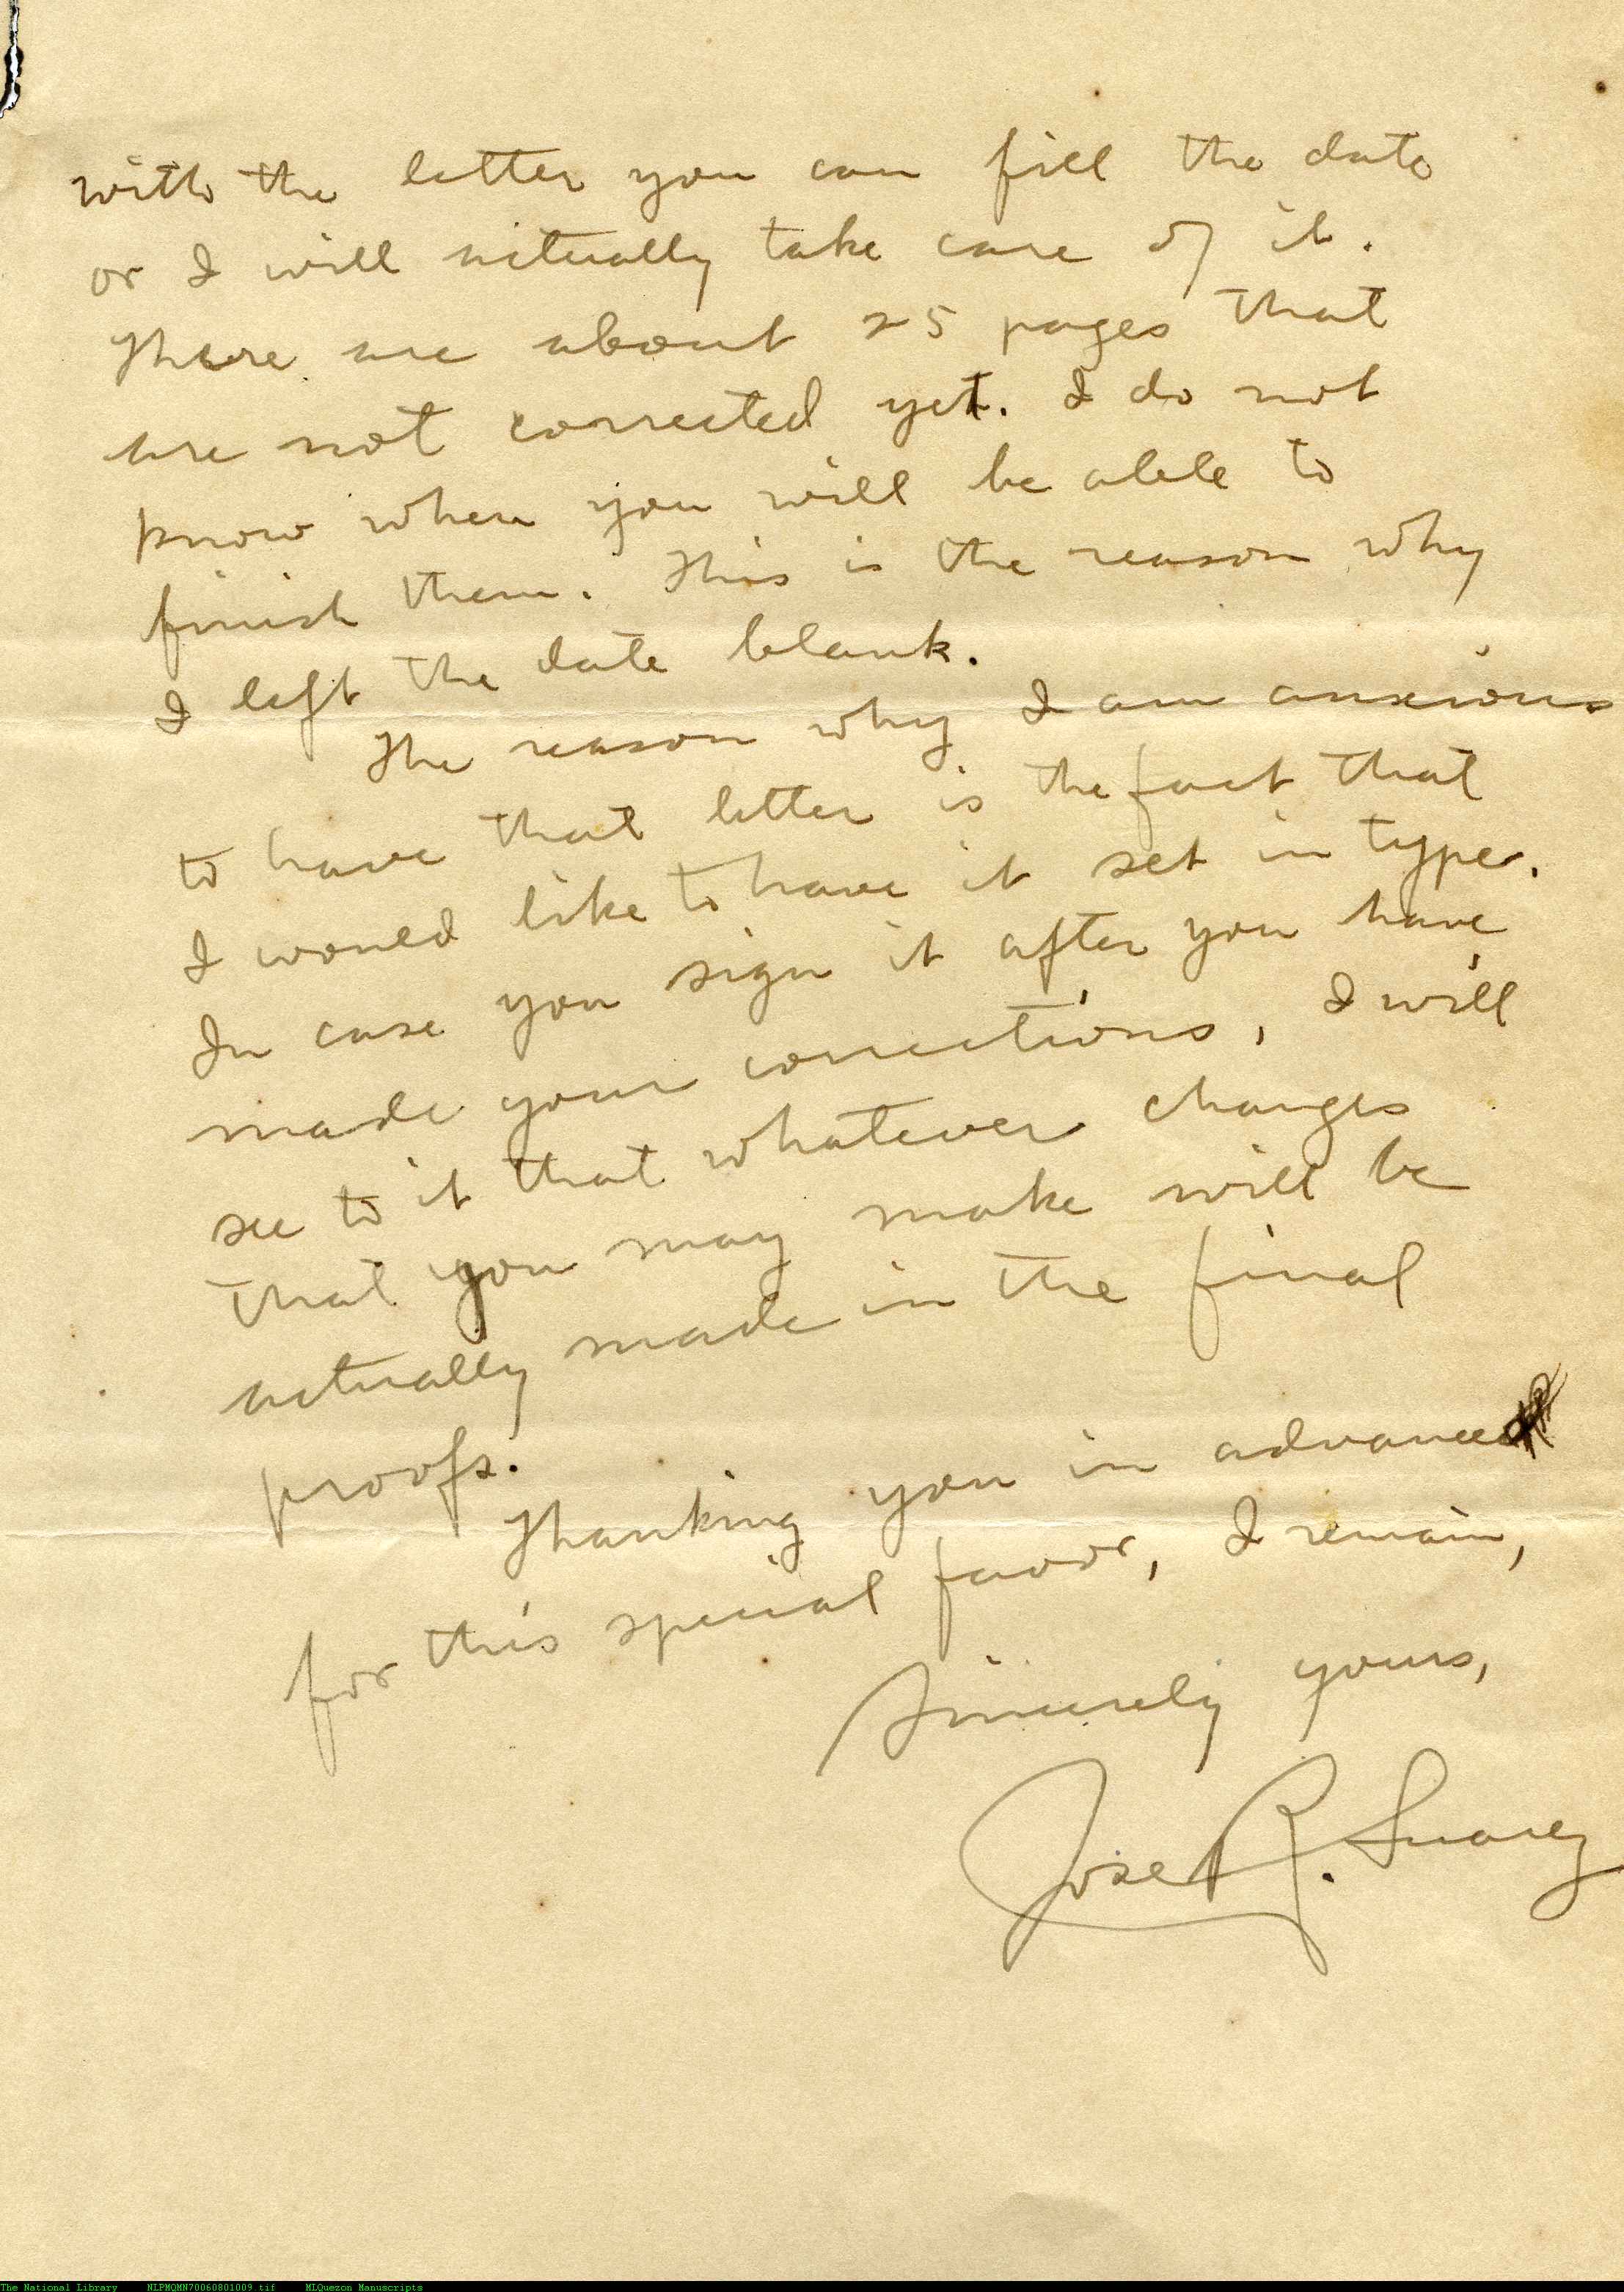 with the letter you can fill the date
or I will actually take care of it.
There are about 25 pages that
are not corrected yet. I do not
know when you will be able to
finish them. This is the reason why
I left the date blank.
The reason why I am anxious
to have that letter is the fact that
I would like to have it set in type.
In case you sign it after you have
made your corrections, I will
see to it that whatever changes
that you may make will be
actually made in the final
proofs.
Thanking you in advance
for this special favor, I remain,
Sincerely yours,
Jose R. Suarez
The National Library NLPMQMN70060801009.tif MLQuezon Manuscripts